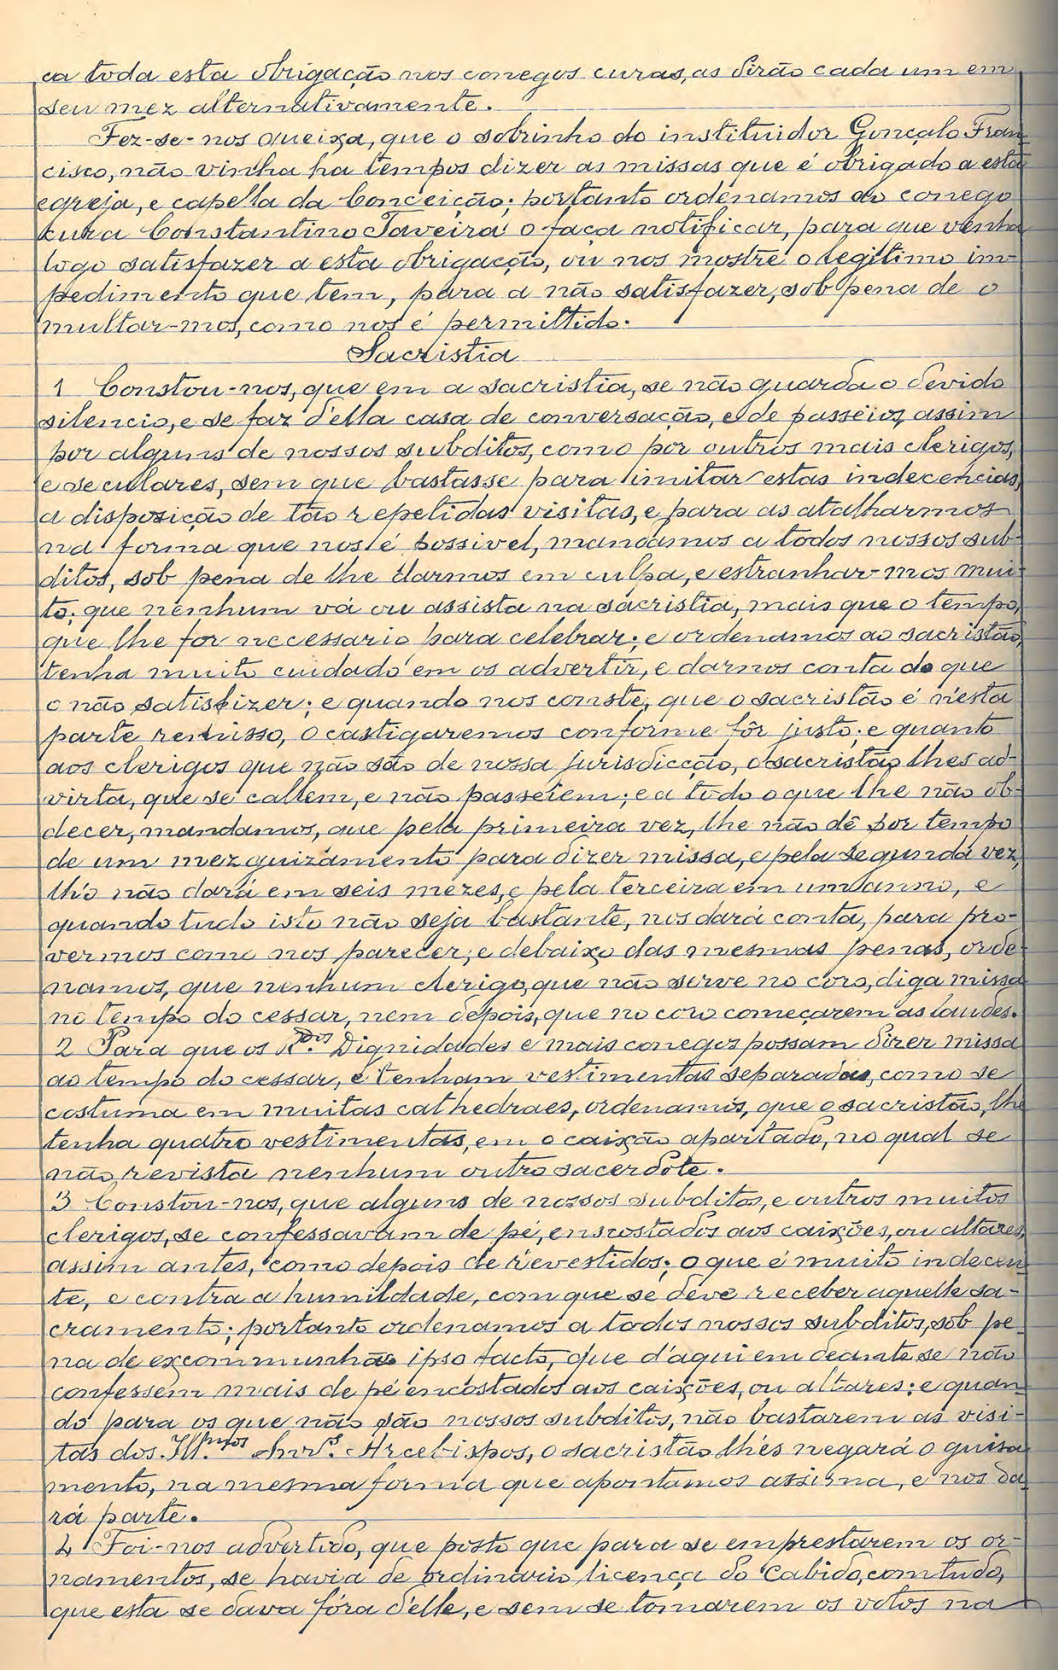 ca toda esta obrigação nos conegos curas, as dirão cada um em
seu mez alternativamente.
Fez-se-nos queixa, que o sobrinho do instituidor Gonçalo Fran-
cisco, não vinha ha tempos dizer as missas que é obrigado a esta
egreja, e capella da Conceição; portanto ordenamos ao conego
cura Constantino Taveira o faça notificar, para que venha
logo satisfazer a esta obrigação, ou nos mostre o legitimo im-
pedimento que tem, para a não satisfazer, sob pena de o
multar-mos, como nos é permittido.
Sacristia
1 Constou-nos, que em a sacristia, se não guarda o devido
silencio, e se faz d'ella casa de conversação, e de passeios, assim
por alguns de nossos subditos, como por outros mais clerigos,
e seculares, sem que bastasse para imitar estas indecencias,
a disposição de tão repetidas visitas, e para as atalharmos
na forma que nos é possivel, mandamos a todos nossos sub-
ditos, sob pena de lhe darmos em culpa, e estranhar-mos mui-
to; que nenhum vá ou assista na sacristia, mais que o tempo,
que lhe for necessario para celebrar; e ordenamos ao sacristão,
tenha muito cuidado em os advertir, e darnos conta do que
o não satisfizer; e quando nos conste, que o sacristão é n'esta
parte remisso, o castigaremos conforme fôr justo; e quanto
aos clerigos que não são de nossa jurisdicção, o sacristão lhes ad-
virta, que se callem, e não passeiem; e a tudo o que lhe não ob-
decer, mandamos, que pela primeira vez, lhe não dê por tempo
de um mez guizamento para dizer missa, e pela segunda vez,
lh'o não dará em seis mezes, e pela terceira em um anno, e
quando tudo isto não seja bastante, nos dará conta, para pro-
vermos como nos parecer; e debaixo das mesmas penas, orde-
namos, que nenhum clerigo, que não serve no coro, diga missa
no tempo do cessar, nem depois, que no coro começarem as laudes.
2 Para que os R.dos Dignidades e mais conegos possam dizer missa
ao tempo do cessar, e tenham vestimentas separadas, como se
costuma em muitas cathedraes, ordenamos, que o sacristão, lhe
tenha quatro vestimentas, em o caixão apartado, no qual se
não revista nenhum outro sacerdote.
3 Constou-nos, que alguns de nossos subditos, e outros muitos
clerigos, se confessavam de pé, encostados aos caixões, ou altares,
assim antes, como depois de revestidos; o que é muito indecen-
te, e contra a humildade, com que se deve receber aquelle sa-
cramento; portanto ordenamos a todos nossos subditos, sob pe-
na de excommunhão ipso facto, que d'aqui em deante se não
confessem mais de pé encostados aos caixões, ou altares; e quan-
do para os que não são nossos subditos, não bastarem as visi-
tas dos Ill.mos Snr.s Arcebispos, o sacristão lhes negará o guisa-
mento, na mesma forma que apontamos assima, e nos da-
rá parte.
4 Foi-nos advertido, que posto que para se emprestarem os or-
namentos, se havia de ordinario licença do Cabido, comtudo,
que esta se dava fóra d'elle, e sem se tomarem os votos na